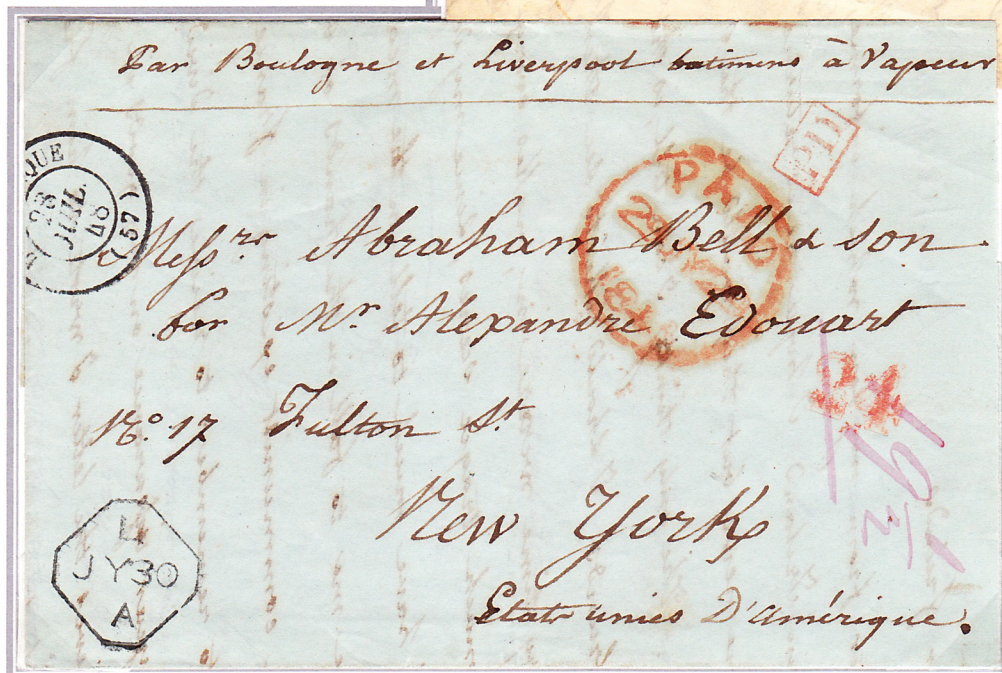 Par Boulogne et Liverpool batimens à Vapeur
PD
QUE
28
JUIL
48
(57)
PAID
Messrs Abraham Bell & son
for Mr Alexandre Edouart
No. 17 Fulton St.
24
New York
L
JY30
A
Etats unies D'amérique.